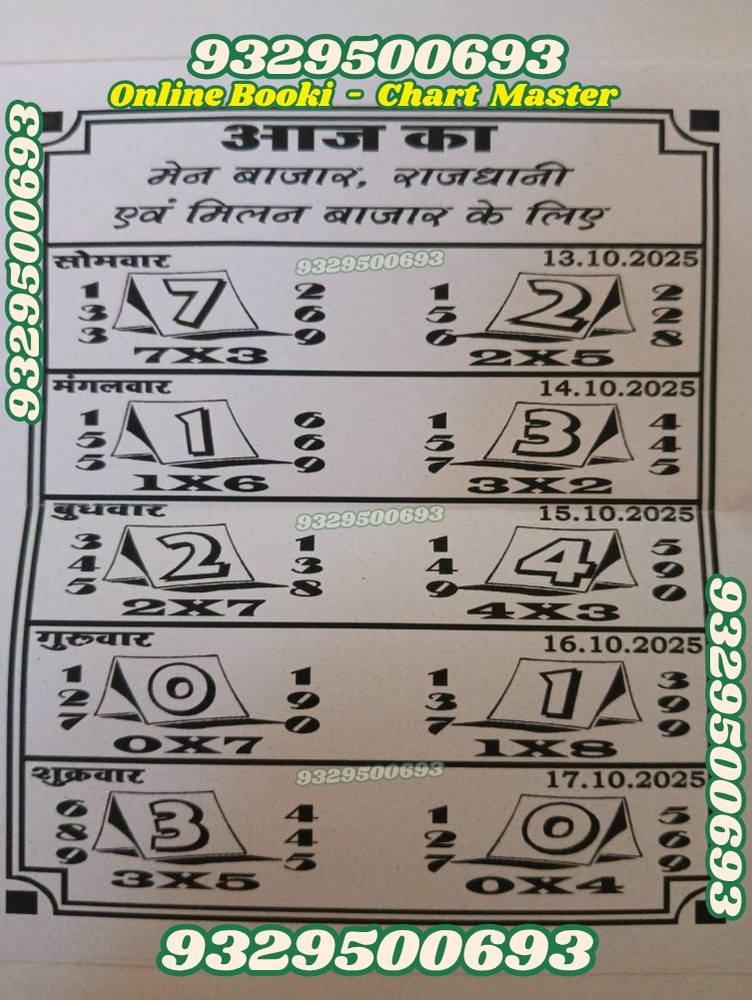 9329500693
Online Booki - Chart Master
9329500693
आज का
मेन बाजार, राजधानी
एवं मिलन बाजार के लिए
सोमवार 9329500693 13.10.2025
1 2 1 2
3 7 6 5 2 2
3 9 6 8
7X3 2X5
मंगलवार 14.10.2025
1 6 1 4
5 1 6 5 3 4
5 9 7 5
1X6 3X2
बुधवार 9329500693 15.10.2025
3 1 1 5
4 2 3 4 4 9
5 8 9 0
2X7 4X3
गुरुवार 16.10.2025
1 1 1 3
2 0 9 3 1 9
7 0 7 9
0X7 1X8
शुक्रवार 9329500693 17.10.2025
6 4 1 5
8 3 4 2 0 6
9 5 7 9
3X5 0X4
9329500693
9329500693